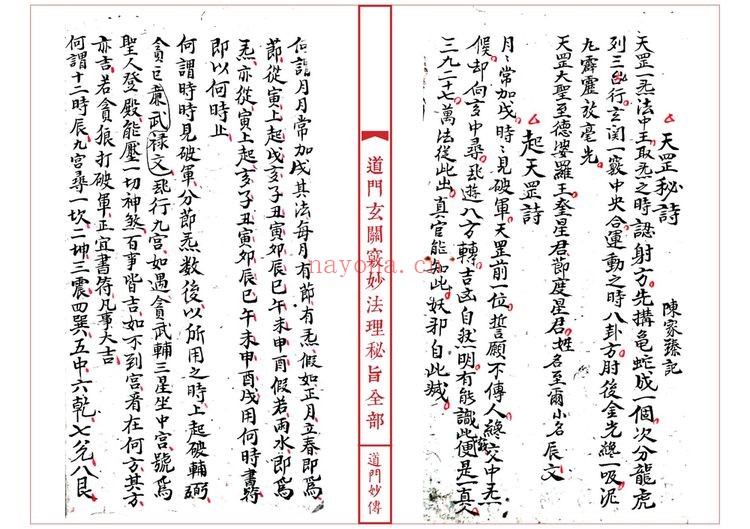 天罡秘詩
陳家臻記
天罡一炁法中王取炁之時認射方先搆龜蛇成一個次分龍虎
列三台行玄関一竅中央合運動之時八卦方肘後金光總一吸泥
九霹靂放毫光
天罡大聖至德婆羅王奎星君節度星君姓名至爾小名辰文
起天罡詩
月月常加戌時時見破軍天罡前一位誓願不傳人總交中炁
候却向亥中尋飛遊八方轉吉凶自我一明有能識此訣便是一真人
三九二十七萬法從此出真官能加此妖邪自此滅
道門玄關竅妙法理秘旨全部
道門妙傳
nayona.cn
何謂月月常加戌其法每月有節有炁假如正月立春即為
節從寅上起戌亥子丑寅卯辰巳午未申酉假若雨水即為
炁亦從寅上起亥子丑寅卯辰巳午未申酉戌用何時書符
即以何時止
何謂時時見破軍分節炁数後以所用之時上起破輔弼
貪巨廉武祿文飛行九宮如遇貪武輔三星坐中宮號為
聖人登殿能壓一切神煞百事皆吉如不到宮看在何方其方
亦吉若貪狼打破軍正宜書符凡事大吉
何謂十二時辰九宮尋一坎二坤三震四巽五中六乾七兌八艮